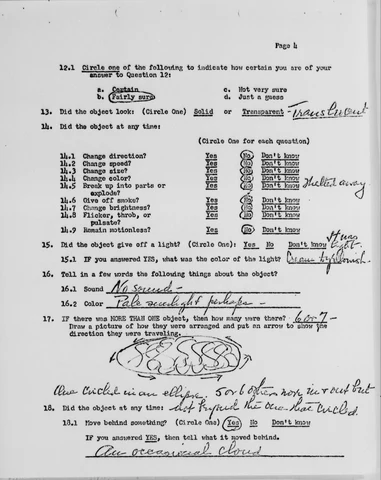 Page 4
12.1 Circle one of the following to indicate how certain you are of your
answer to Question 12:
a. Certain c. Not very sure
b. Fairly sure d. Just a guess
13. Did the object look: (Circle One) Solid or Transparent - Translucent
14. Did the object at any time:
(Circle One for each question)
14.1 Change direction? Yes No Don't know
14.2 Change speed? Yes No Don't know
14.3 Change size? Yes No Don't know
14.4 Change color? Yes No Don't know
14.5 Break up into parts or explode? Yes No Don't know Melted away
14.6 Give off smoke? Yes No Don't know
14.7 Change brightness? Yes No Don't know
14.8 Flicker, throb, or pulsate? Yes No Don't know
14.9 Remain motionless? Yes No Don't know
15. Did the object give off a light? (Circle One): Yes No Don't know It was light.
15.1 IF you answered YES, what was the color of the light?
16. Tell in a few words the following things about the object?
16.1 Sound No sound -
16.2 Color Pale sunlight perhaps -
17. IF there was MORE THAN ONE object, then how many were there? 6 or 7 -
Draw a picture of how they were arranged and put an arrow to show the
direction they were traveling.
One circled in an ellipse. 5 or 6 others in + out but
18. Did the object at any time: not beyond the one that circled
18.1 Move behind something? (Circle One) Yes No Don't know
IF you answered YES, then tell what it moved behind.
An occasional cloud